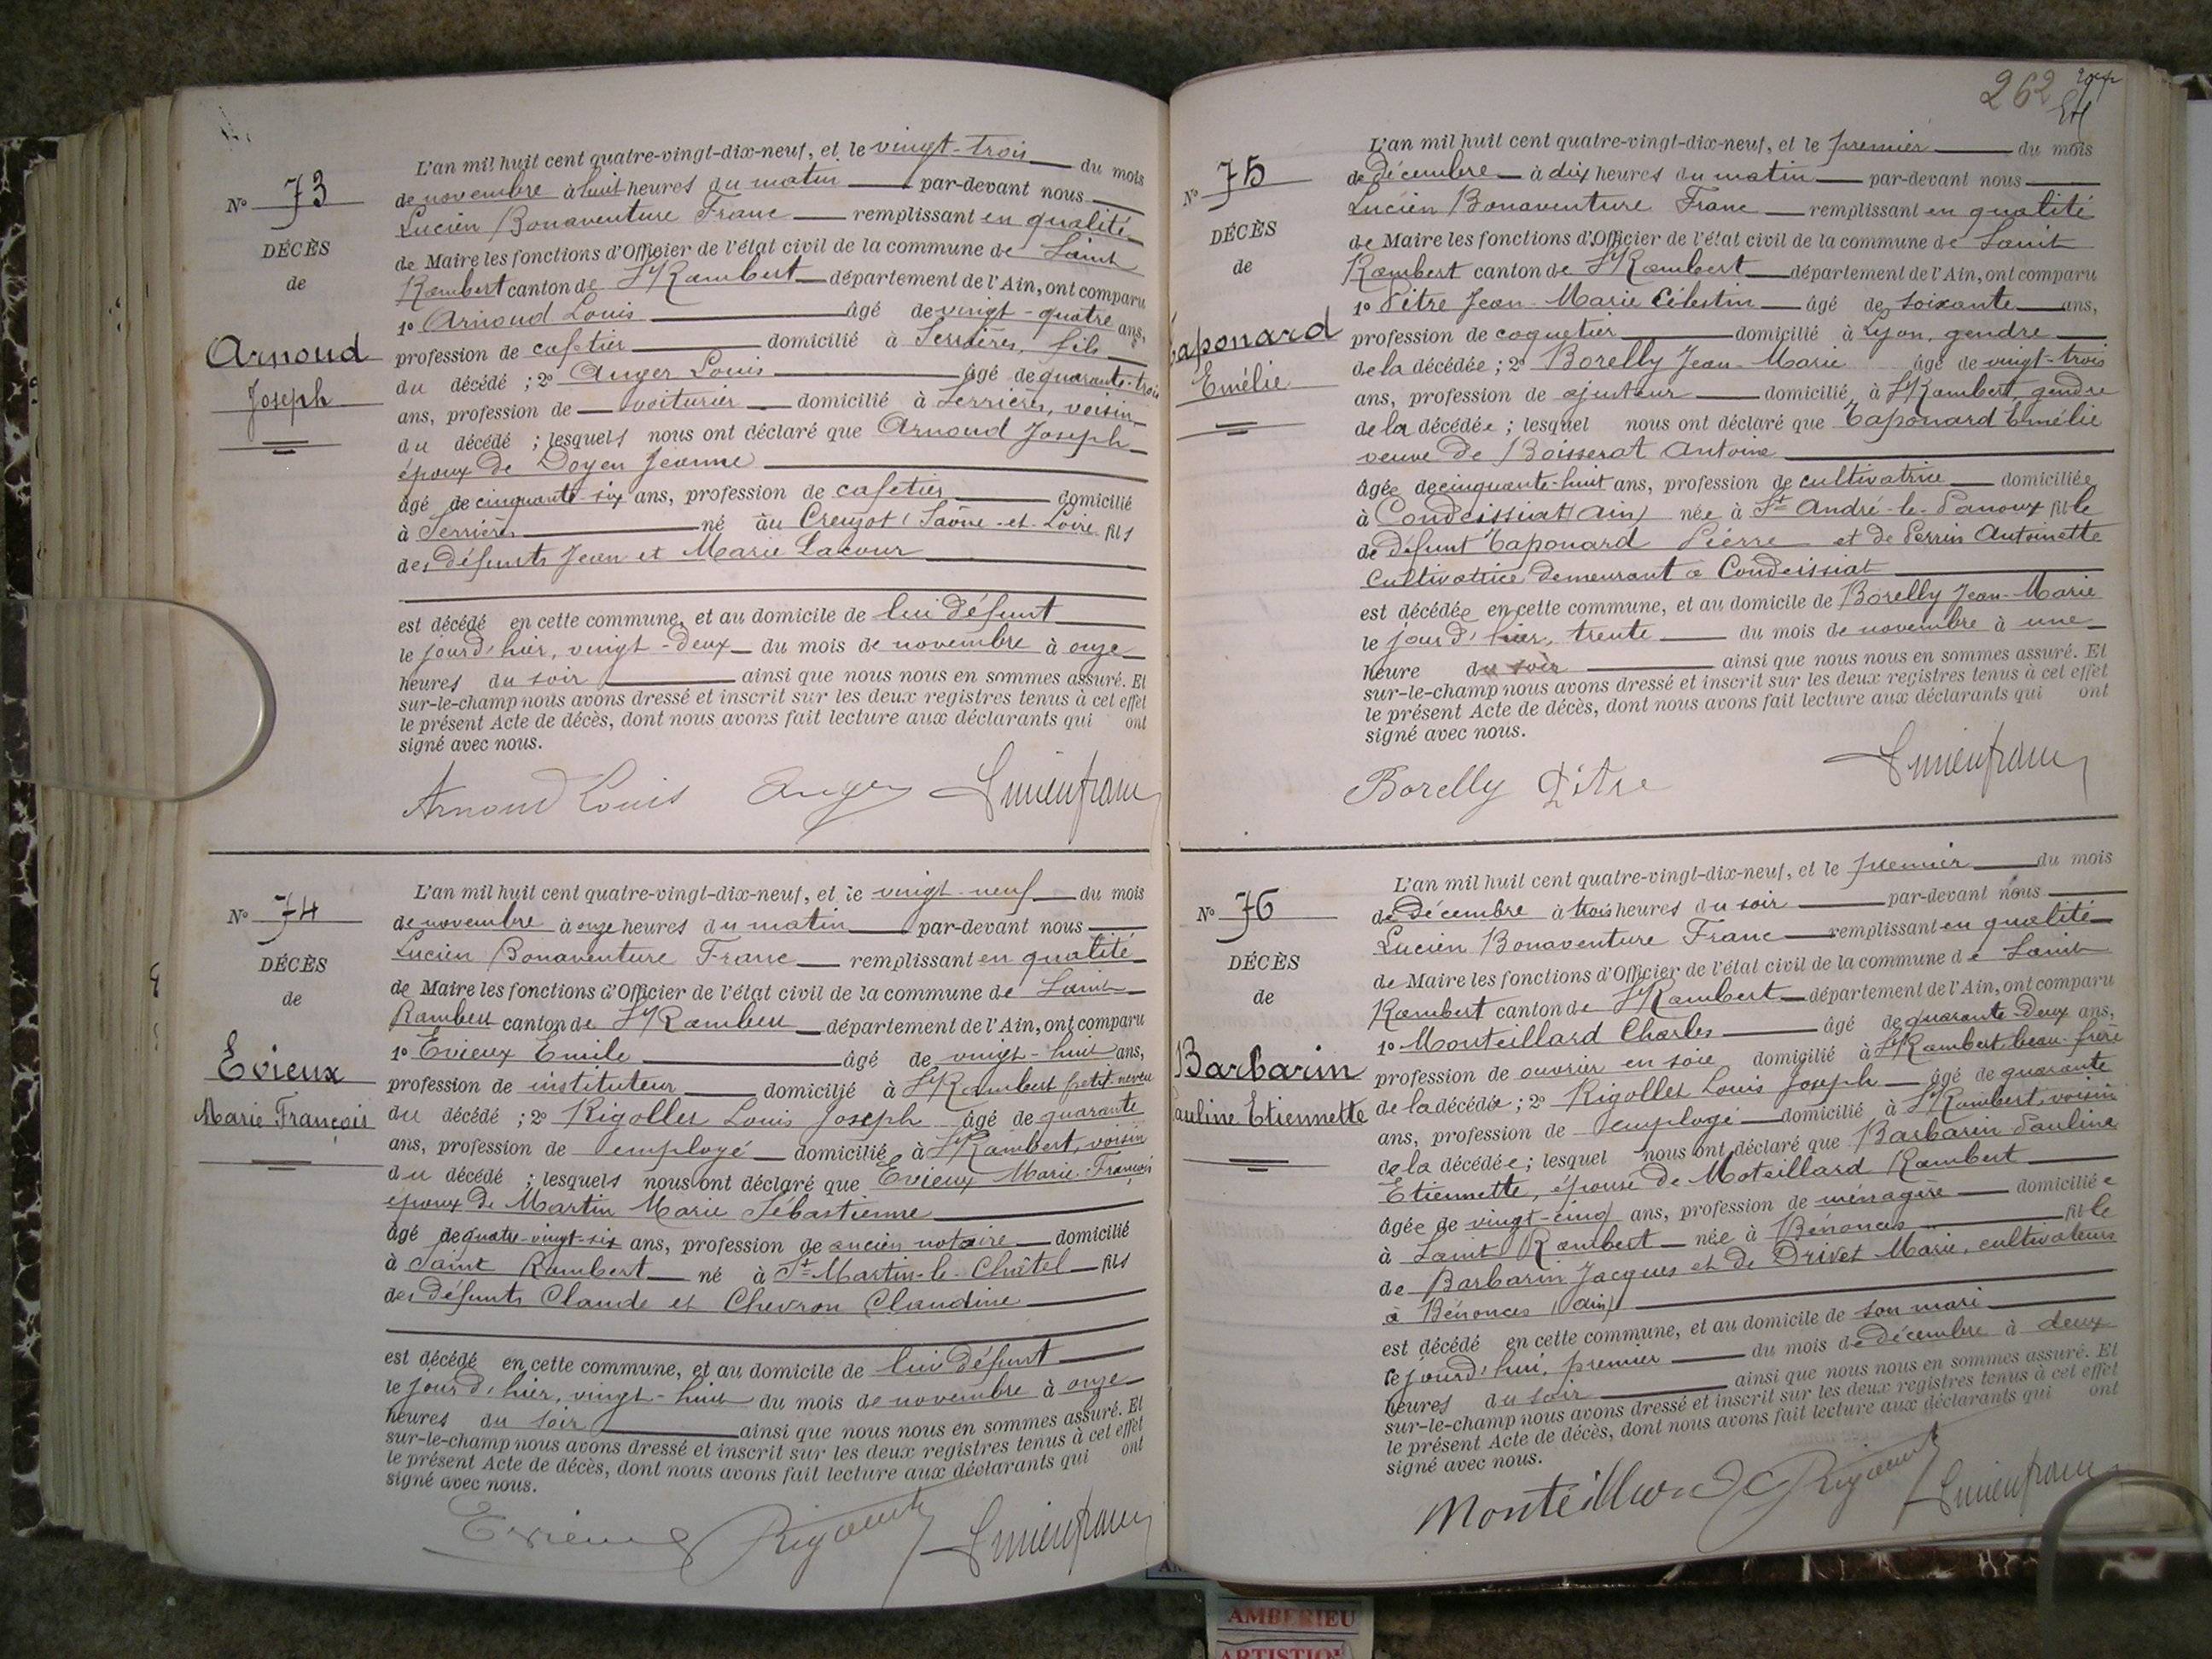 N° 73
DÉCÈS
de
Arnoud
Joseph
L'an mil huit cent quatre-vingt-dix-neuf, et le vingt-trois du mois
de novembre à huit heures du matin par-devant nous
Lucien Bonaventure Franc remplissant en qualité
de Maire les fonctions d'Officier de l'état civil de la commune de Saint
Rambert canton de St Rambert département de l'Ain, ont comparu
1° Arnoud Louis âgé de vingt-quatre ans,
profession de cafetier domicilié à Serrières, fils
du décédé ; 2° Auger Louis âgé de quarante-trois
ans, profession de voiturier domicilié à Serrières, voisin
du décédé ; lesquels nous ont déclaré que Arnoud Joseph
époux de Doyen Jeanne
âgé de cinquante-six ans, profession de cafetier domicilié
à Serrières né au Creuzot (Saône-et-Loire fils
des défunts Jean et Marie Lacour
est décédé en cette commune, et au domicile de lui défunt
le jour d'hier, vingt-deux du mois de novembre à onze
heures du soir ainsi que nous nous en sommes assuré. Et
sur-le-champ nous avons dressé et inscrit sur les deux registres tenus à cet effet
le présent Acte de décès, dont nous avons fait lecture aux déclarants qui ont
signé avec nous.
Arnoud Louis Auger Lucien franc
N° 74
DÉCÈS
de
Evieux
Marie François
L'an mil huit cent quatre-vingt-dix-neuf, et le vingt-neuf du mois
de novembre à onze heures du matin par-devant nous
Lucien Bonaventure Franc remplissant en qualité
de Maire les fonctions d'Officier de l'état civil de la commune de Saint
Rambert canton de St Rambert département de l'Ain, ont comparu
1° Evieux Emile âgé de vingt-huit ans,
profession de instituteur domicilié à St Rambert petit-neveu
du décédé ; 2° Rigollet Louis Joseph âgé de quarante
ans, profession de employé domicilié à St Rambert, voisin
du décédé ; lesquels nous ont déclaré que Evieux Marie-François
époux de Martin Marie Sébastienne
âgé de quatre-vingt-six ans, profession de ancien notaire domicilié
à Saint Rambert né à St Martin-le-Châtel fils
des défunts Claude et Chevron Claudine
est décédé en cette commune, et au domicile de lui défunt
le jour d'hier, vingt-huit du mois de novembre à onze
heures du soir ainsi que nous nous en sommes assuré. Et
sur-le-champ nous avons dressé et inscrit sur les deux registres tenus à cet effet
le présent Acte de décès, dont nous avons fait lecture aux déclarants qui ont
signé avec nous.
Evieux Rigollet Lucien franc
262
N° 75
DÉCÈS
de
Taponard
Emélie
L'an mil huit cent quatre-vingt-dix-neuf, et le premier du mois
de décembre à dix heures du matin par-devant nous
Lucien Bonaventure Franc remplissant en qualité
de Maire les fonctions d'Officier de l'état civil de la commune de Saint
Rambert canton de St Rambert département de l'Ain, ont comparu
1° Pitre Jean-Marie Célestin âgé de soixante ans,
profession de coquetier domicilié à Lyon, gendre
de la décédée ; 2° Borelly Jean-Marie âgé de vingt-trois
ans, profession de ajusteur domicilié à St Rambert, gendre
de la décédée ; lesquel nous ont déclaré que Taponard Emélie
veuve de Boisserat Antoine
âgée de cinquante-huit ans, profession de cultivatrice domiciliée
à Condeissiat (Ain) née à St André-le-Panoux fille
de défunt Taponard Pierre et de Perrin Antoinette
cultivatrice demeurant à Condeissiat
est décédée en cette commune, et au domicile de Borelly Jean-Marie
le jour d'hier, trente du mois de novembre à une
heure du soir ainsi que nous nous en sommes assuré. Et
sur-le-champ nous avons dressé et inscrit sur les deux registres tenus à cet effet
le présent Acte de décès, dont nous avons fait lecture aux déclarants qui ont
signé avec nous.
Borelly Pitre Lucien franc
N° 76
DÉCÈS
de
Barbarin
Pauline Etiennette
L'an mil huit cent quatre-vingt-dix-neuf, et le premier du mois
de Décembre à trois heures du soir par-devant nous
Lucien Bonaventure Franc remplissant en qualité
de Maire les fonctions d'Officier de l'état civil de la commune de Saint
Rambert canton de St Rambert département de l'Ain, ont comparu
1° Monteillard Charles âgé de quarante-deux ans,
profession de ouvrier en soie domicilié à St Rambert, beau-frère
de la décédée ; 2° Rigollet Louis Joseph âgé de quarante
ans, profession de employé domicilié à St Rambert, voisin
de la décédée ; lesquel nous ont déclaré que Barbarin Pauline
Etiennette, épouse de Moteillard Rambert
âgée de vingt-cinq ans, profession de ménagère domiciliée
à Saint Rambert née à Bénonces fille
de Barbarin Jacques et de Drivet Marie, cultivateurs
à Bénonces (Ain)
est décédé en cette commune, et au domicile de son mari
le jourd'hui, premier du mois de décembre à deux
heures du soir ainsi que nous nous en sommes assuré. Et
sur-le-champ nous avons dressé et inscrit sur les deux registres tenus à cet effet
le présent Acte de décès, dont nous avons fait lecture aux déclarants qui ont
signé avec nous.
Monteillard Rigollet Lucien franc
AMBERIEU